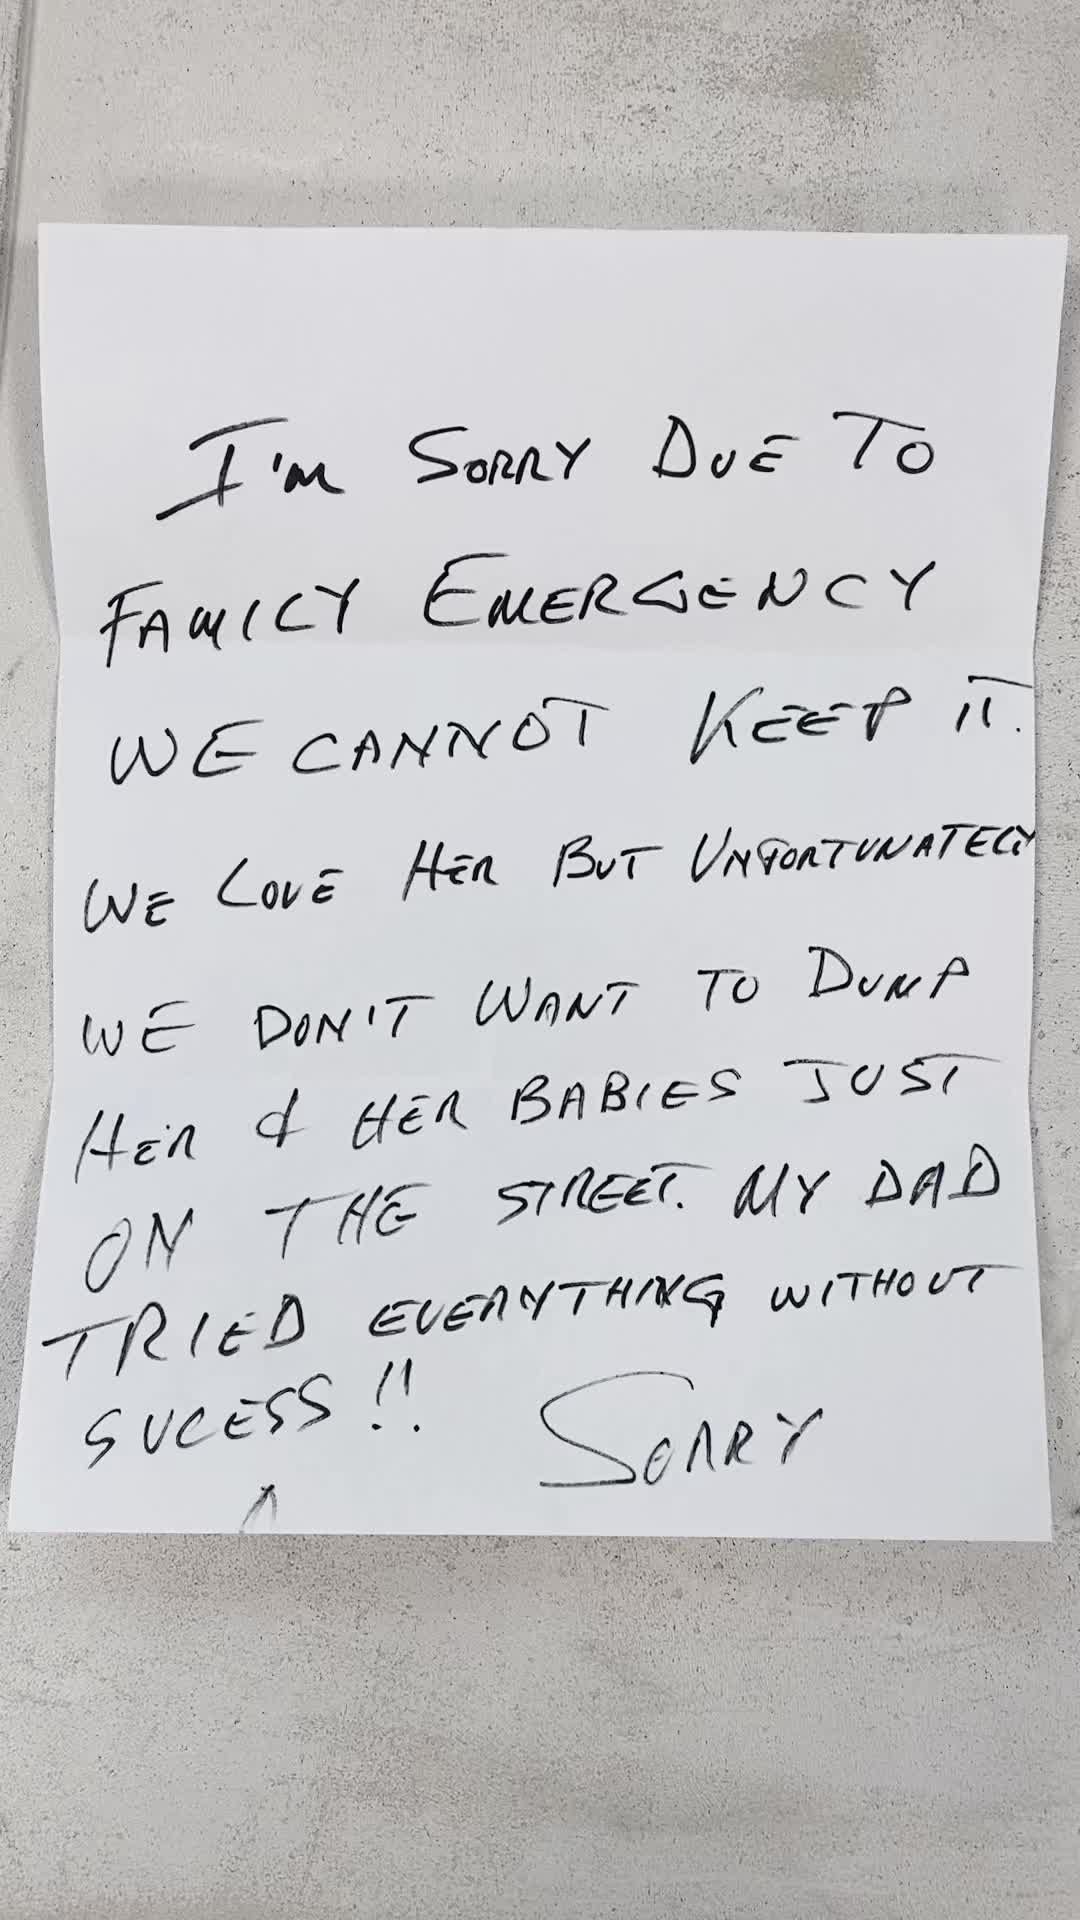 I'm SORRY DUE TO
FAMILY EMERGENCY
WE CANNOT KEEP IT.
WE LOVE HER BUT UNFORTUNATELY
WE DON'T WANT TO DUMP
HER & HER BABIES JUST
ON THE STREET. MY DAD
TRIED EVERYTHING WITHOUT
SUCESS!! SORRY